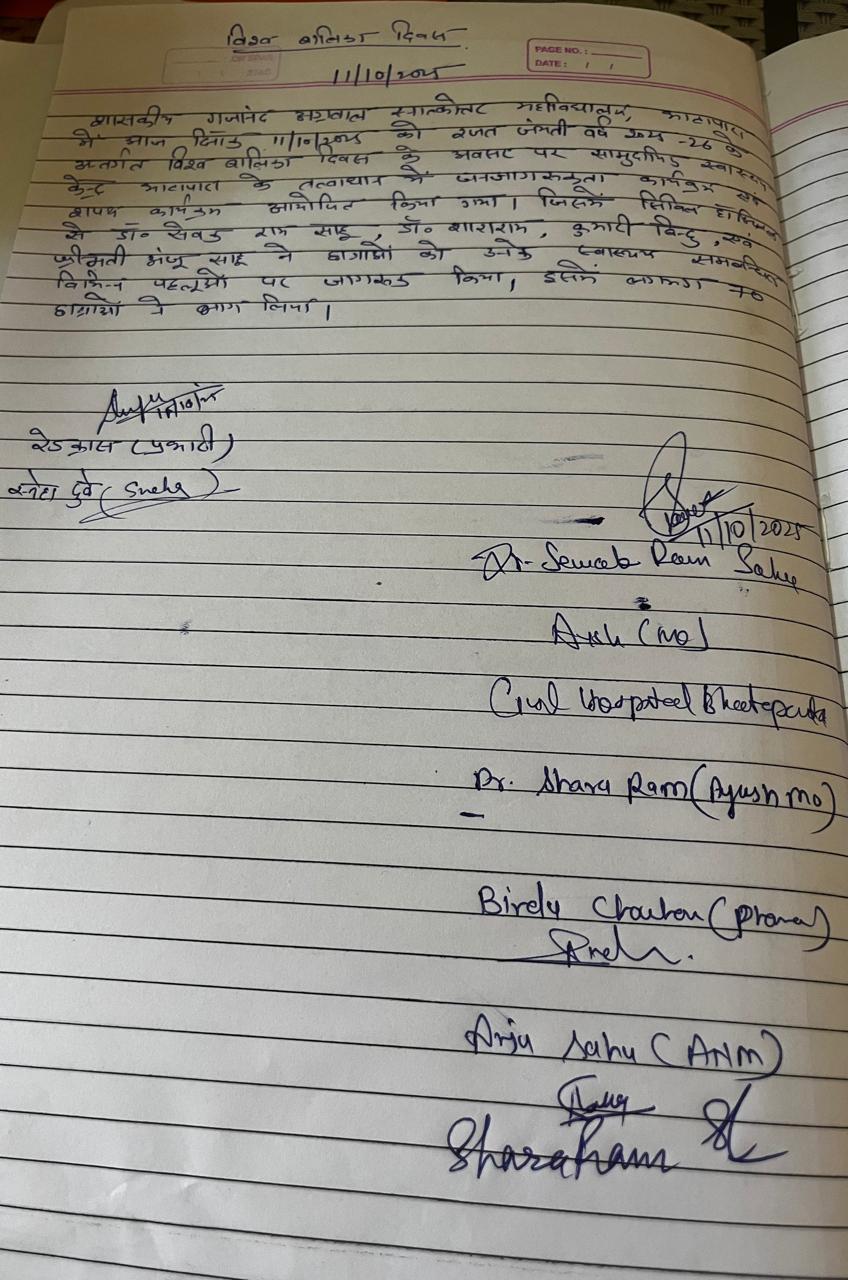 विश्व बालिका दिवस
PAGE NO.:
DATE: / /
11/10/2025
शासकीय गजानंद अग्रवाल स्नातकोत्तर महाविद्यालय, भाटापारा
में आज दिनांक 11/10/2025 को रजत जयंती वर्ष 2025-26 के
अन्तर्गत विश्व बालिका दिवस के अवसर पर सामुदायिक स्वास्थ्य
केन्द्र भाटापारा के तत्वाधान में जनजागरूकता कार्यक्रम एवं
शपथ कार्यक्रम आयोजित किया गया। जिसमें सिविल हॉस्पिटल
से डॉ० सेवक राम साहू, डॉ० शाराराम, कुमारी बिन्दु, एवं
श्रीमती अंजू साहू ने छात्राओं को उनके स्वास्थ्य सम्बन्धित
विभिन्न पहलूओं पर जागरूक किया, इसमें लगभग 70
छात्राओं ने भाग लिया।
11/10/25
रेडक्रास (प्रभारी)
स्नेहा दुबे (Sneha)
11/10/2025
Dr. Sewak Ram Sahu
(MO)
Civil Hospital Bhatapara
Dr. Shara Ram (Ayush MO)
Birdu Chouhan (Pharma)
Anju Sahu (ANM)
Sharaham